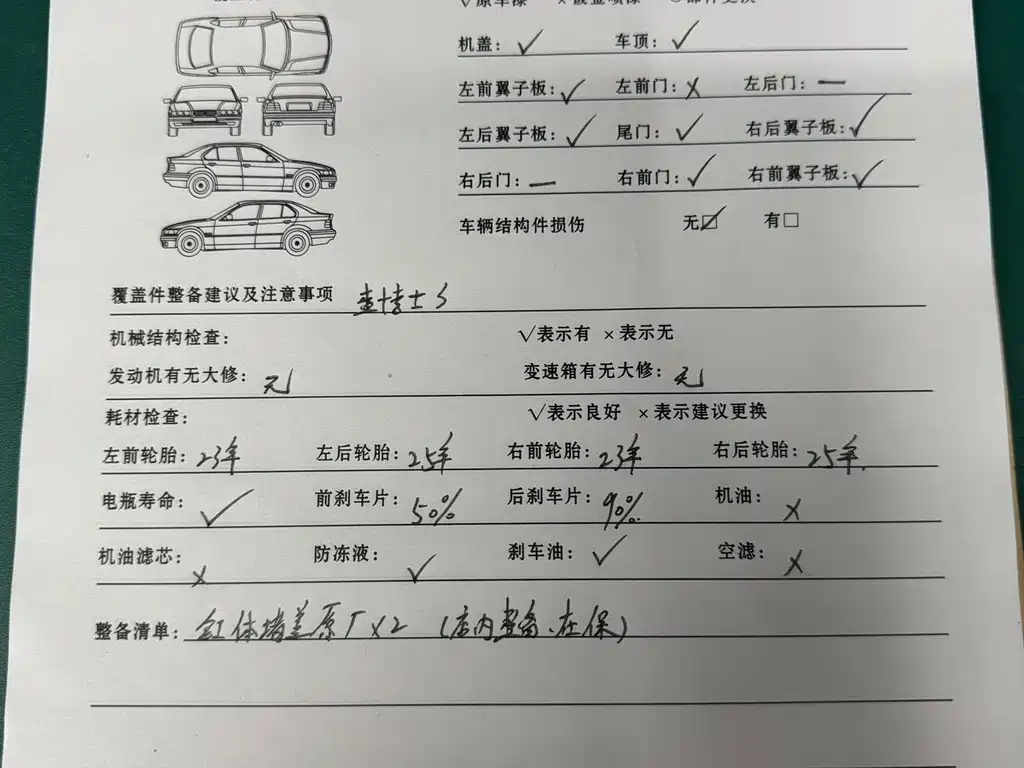 √原车漆 ×钣金喷漆 ○部件更换
机盖：✓ 车顶：✓
左前翼子板：✓ 左前门：× 左后门：—
左后翼子板：✓ 尾门：✓ 右后翼子板：✓
右后门：— 右前门：✓ 右前翼子板：✓
车辆结构件损伤 无☑ 有□
覆盖件整备建议及注意事项 查博士S
机械结构检查： √表示有 ×表示无
发动机有无大修：无 变速箱有无大修：无
耗材检查： √表示良好 ×表示建议更换
左前轮胎：23年 左后轮胎：25年 右前轮胎：23年 右后轮胎：25年.
电瓶寿命：✓ 前刹车片：50% 后刹车片：90% 机油：×
机油滤芯：× 防冻液：✓ 刹车油：✓ 空滤：×
整备清单：缸体堵盖原厂×2（店内整备、在保）